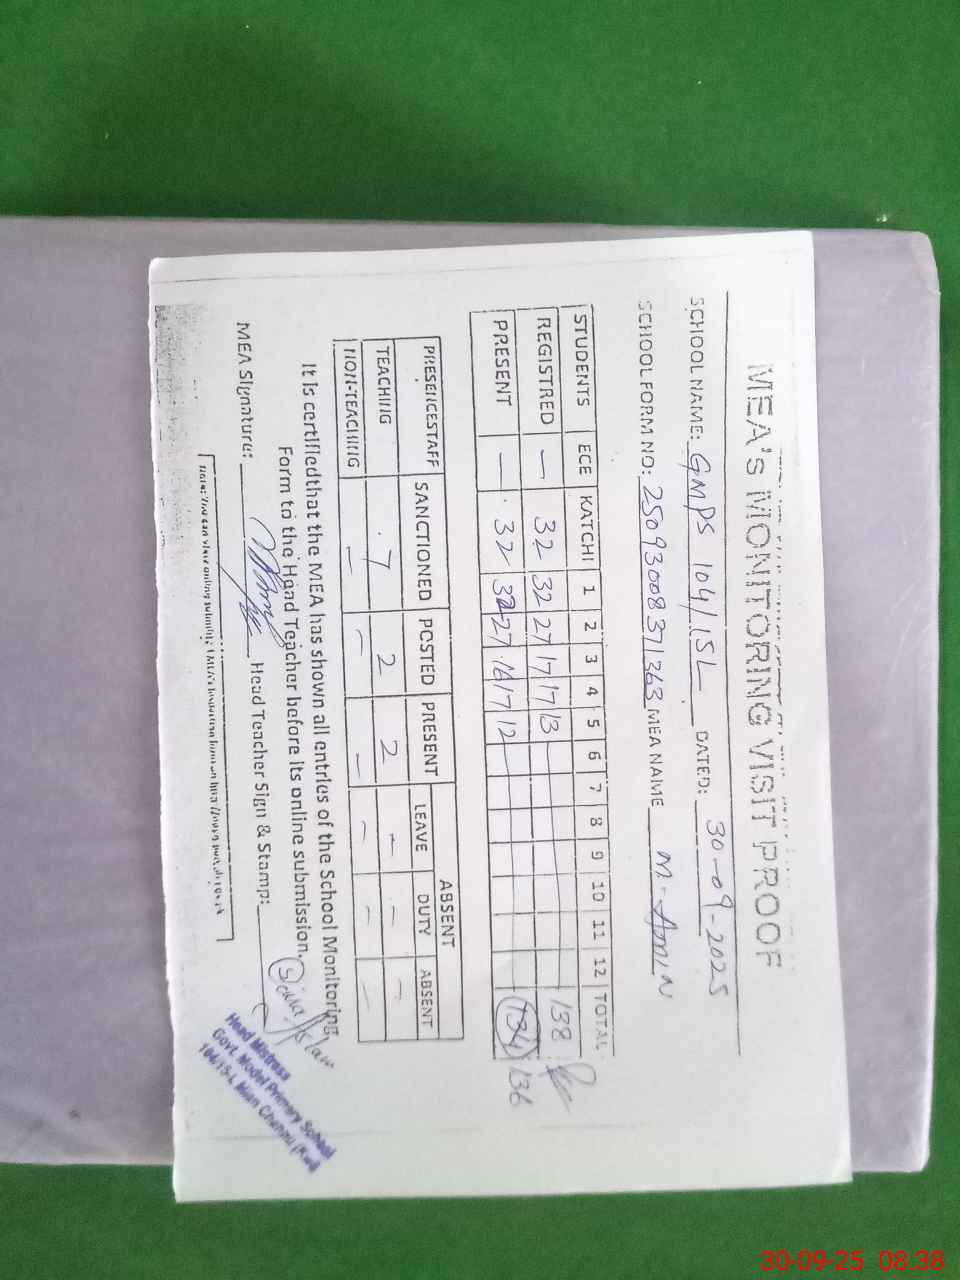 MEA's MONITORING VISIT PROOF
SCHOOL NAME: GMPS 104/15L DATED: 30-09-2025
SCHOOL FORM NO: 25093008371363 MEA NAME M. Amin
STUDENTS ECE KATCHI 1 2 3 4 5 6 7 8 9 10 11 12 TOTAL
REGISTRED — 32 32 27 17 17 13 138
PRESENT — 32 32 27 16 17 12 134 136
ABSENT
PRESENCESTAFF SANCTIONED POSTED PRESENT LEAVE DUTY ABSENT
TEACHING 7 2 2 — — —
NON-TEACHING — — — — — —
It is certifiedthat the MEA has shown all entries of the School Monitoring
Form to the Head Teacher before its online submission.
MEA Signature: Head Teacher Sign & Stamp:
Head Mistress
Govt. Model Primary School
104/15-L Mian Channu
30-09-25 08.38